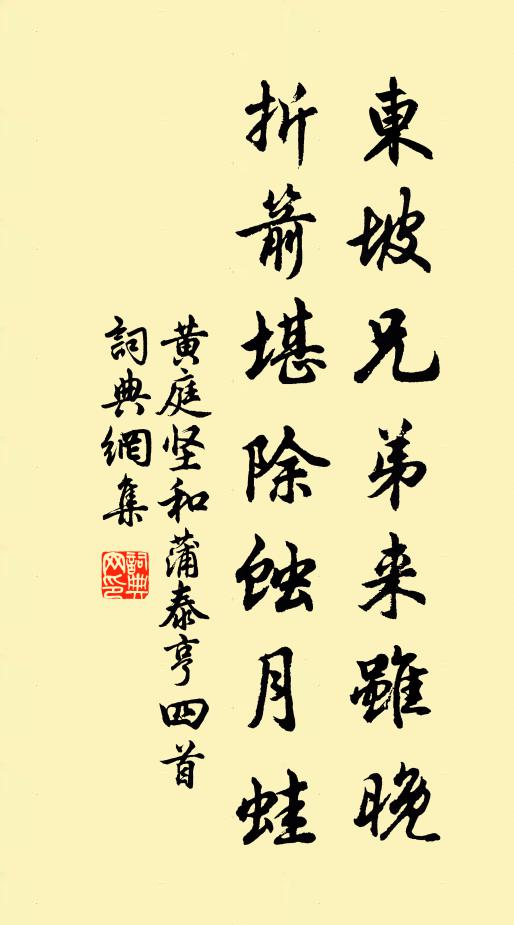 東坡兄弟来雖晚
折箭堪除蝕月蛙
黄庭坚和蒲泰亨四首
詞典網集
詞典网印